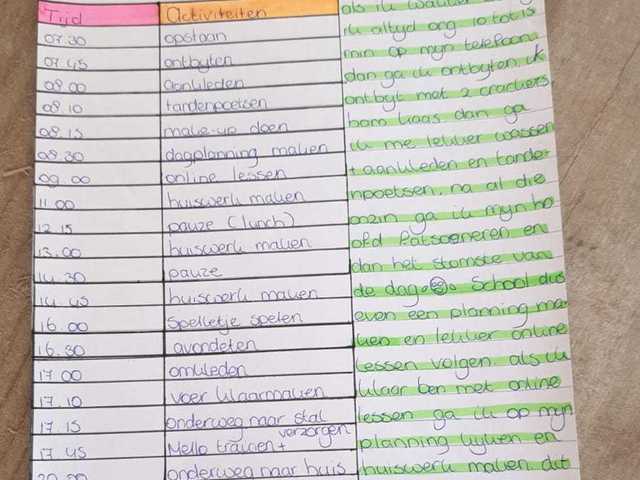 Tijd Activiteiten
07.30 opstaan
07.45 ontbyten
08.00 aankleden
08.10 tandenpoetsen
08.15 make-up doen
08.30 dagplanning maken
09.00 online lessen
11.00 huiswerk maken
12.15 pauze (lunch)
13.00 huiswerk maken
14.30 pauze
14.45 huiswerk maken
16.00 spelletje spelen
16.30 avondeten
17.00 omkleden
17.10 voer klaarmaken
17.15 onderweg naar stal
17.45 Mello trainen + verzorgen
20.00 onderweg naar huis
als ik wakker
ik altyd org 10 tot 15
min op myn telefoon
dan ga ik ontbyten ik
ontbyt met 2 crackers
ham kaas dan ga
ik me lekker wassen
+ aankleden en tande-
npoetsen. na al die
onzin ga ik myn ho-
ofd fatsoeneren en
dan het stomste van
de dag. School dus
even een planning ma-
ken en lekker online
lessen volgen. als ik
klaar ben met online
lessen ga ik op myn
planning kyken en
huiswerk maken. dit